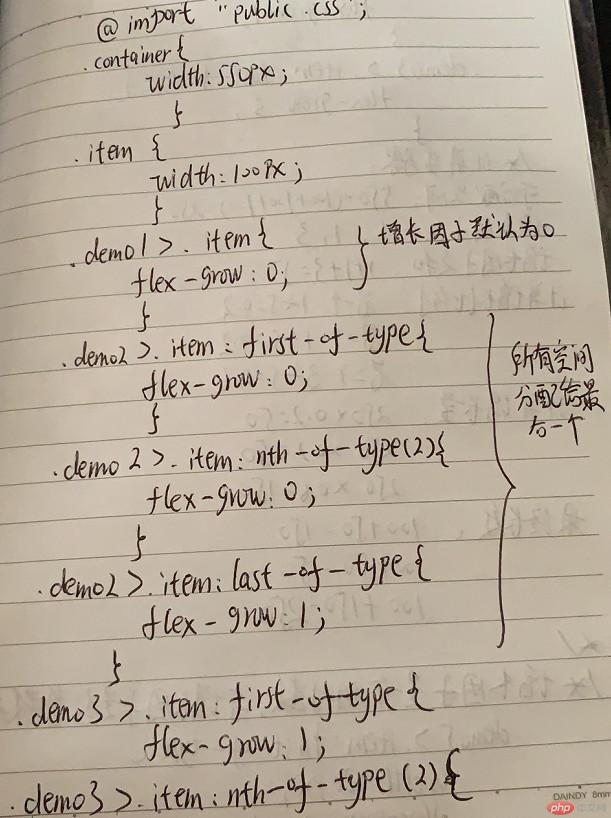 @ import "public.css";
.container{
width:550px;
}
.item {
width:100px;
}
.demo1>.item{
flex-grow:0;
}
增长因子默认为0
.demo2>.item:first-of-type{
flex-grow:0;
}
.demo2>.item:nth-of-type(2){
flex-grow:0;
}
.demo2>.item:last-of-type{
flex-grow:1;
}
所有空间
分配给最
后一个
.demo3>.item:first-of-type{
flex-grow:1;
.demo3>.item:nth-of-type(2){
DAINDY 8mm
php 中文网